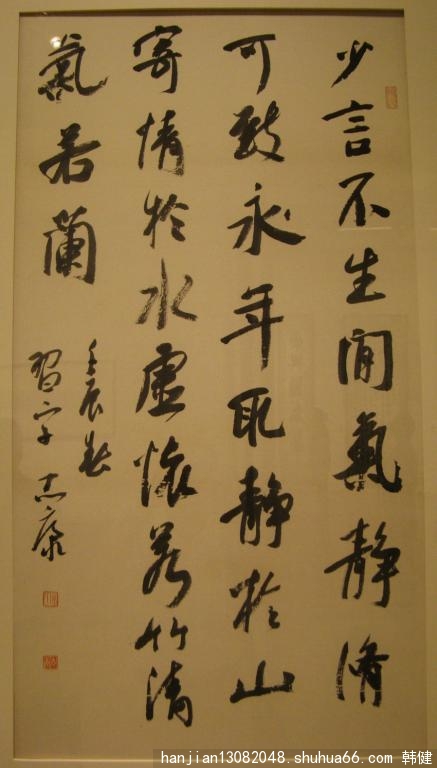 少言不生閒氣靜脩
可致永年取靜於山
寄情於水虛懷若竹清
氣若蘭
壬辰春
習字志康
hanjian13082048.shuhua66.com 韩健